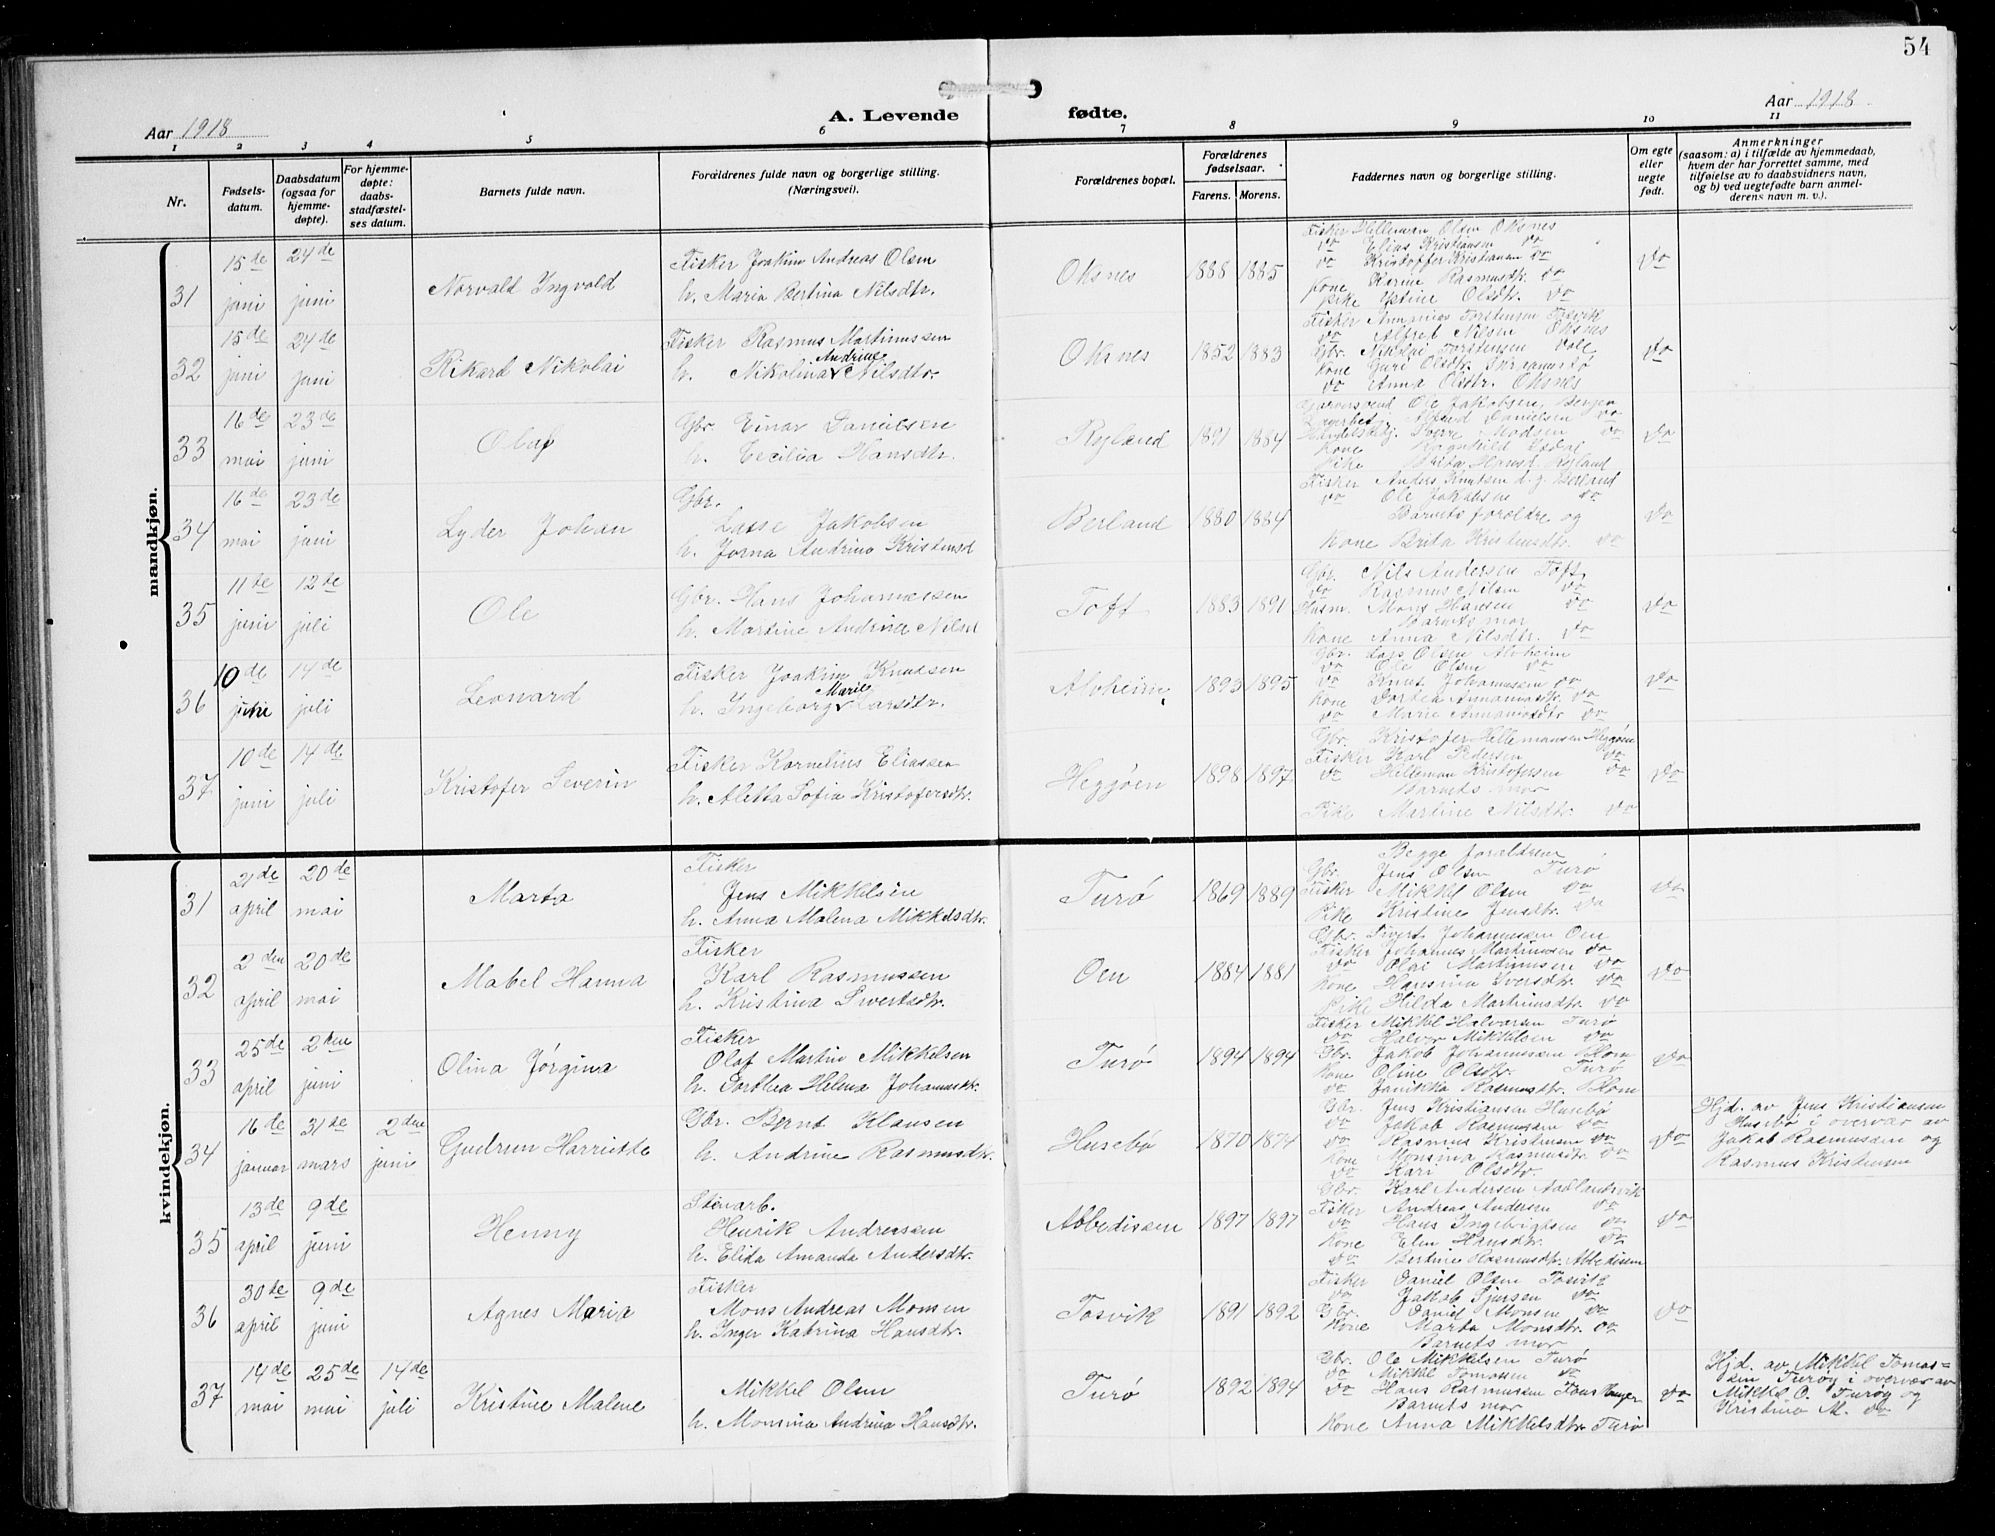 54
Aar 1918
A. Levende
fødte.
Aar 1918
1 2 3 4 5 6 7 8 9 10 11
Nr.
Fødsels-
datum.
Daabsdatum
(ogsaa for
hjemme-
døpte).
For hjemme-
døpte:
daabs-
stadfæstel-
ses datum.
Barnets fulde navn.
Forældrenes fulde navn og borgerlige stilling.
(Næringsvei).
Forældrenes bopæl.
Forældrenes
fødselsaar.
Farens. Morens.
Faddernes navn og borgerlige stilling.
Om egte
eller
uegte
født.
Anmerkninger
(saasom: a) i tilfælde av hjemmedaab,
hvem der har forrettet samme, med
tilføielse av to daabsvidners navn,
og b) ved uegtefødte barn anmel-
derens navn m. v.).
mandkjøn.
31
15de juni
24de juni
Norvald Ingvald
Fisker Joakim Andreas Olsen
h. Maria Bertina Nilsdtr.
Oksnes
1888 1885
Fisker Hilleman Olsen Oksnes
do Elias Kristiansen do
do Kristoffer Kristiansen do
Kone Karine Rasmusdtr. do
Pike Ystine Olsdtr. do
do
32
15de juni
24de juni
Rikard Nikolai
Fisker Rasmus Martinussen
h. Nikolina Andrine Nilsdtr.
Oksnes
1852 1883
Fisker Annanias Torstensen Tosvik
do Alfred Nilsen Oksnes
Gbr. Nikolai Torstensen Volle
Kone Guri Olsdtr. Skraanestø
do Anna Olsdtr. Oksnes
do
33
16de mai
23de juni
Olaf
Gbr. Einar Danielsen
h. Cecilia Hansdtr.
Ryland
1891 1884
Garversvend Ole Jakobsen, Bergen
Lagerbetj. Alfred Danielsen do
Handelsbetj. Sverre Madsen do
Kone Ragnhild
Pike Brita Hansd. Ryland
do
34
16de mai
23de juni
Lyder Johan
Gbr.
Lasse Jakobsen
h. Jorna Andrina Kristensd
Berland
1880 1884
Fisker Anders Knutsen d. y. Berland
do Ole Jakobsen do
Barnets forældre og
Kone Brita Kristensdtr. do
do
35
11te juni
12te juli
Ole
Gbr. Hans Johannessen
h. Martine Andrine Nilsd
Toft
1883 1891
Gbr. Nils Andersen Toft
do Rasmus Nilsen do
Husm. Mons Hansen do
Barnets mor
Kone Anna Nilsdtr. do
do
36
10de juni
14de juli
Leonard
Fisker Joakim Knutsen
h. Ingeborg Marie Larsdtr.
Alvheim
1893 1895
Gbr. Lars Olsen Alvheim
do Ole Olsen do
do Knut Johannessen do
Kone Dortea Annaniasdtr. do
do Marie Annaniasdtr do
do
37
10de juni
14de juli
Kristofer Severin
Fisker Kornelius Eliassen
h. Aletta Sofia Kristofersdtr.
Heggøen
1898 1897
Gbr. Kristofer Hillemansen Heggøen
Fisker Karl Pedersen do
do Hilleman Kristofersen do
Barnets mor
Pike Martine Nilsdtr. do
do
kvindekjøn.
31
21de april
20de mai
Marta
Fisker
Jens Mikkelsen
h. Anna Malena Mikkelsdtr.
Turø
1869 1889
Begge forældrene
Gbr. Jens Olsen Turø
Fisker Mikkel Olsen do
Pike Kristine Jensdtr. do
do
32
2den april
20de mai
Mabel Hanna
Fisker
Karl Rasmussen
h. Kristina Sivertsdtr.
Oen
1884 1881
Gbr. Sivert Johannessen Oen
Fisker Johannes Martinusen do
do Olai Martinusen do
Kone Hansina Iversdtr. do
Pike Hilda Martinusdtr. do
do
33
25de april
2den juni
Olina Jørgina
Fisker
Olaf Martin Mikkelsen
h. Dorthea Helena Johannesdtr.
Turø
1894 1894
Fisker Mikkel Halvorsen Turø
do Halvor Mikkelsen do
Gbr. Jakob Johannessen Blom
Kone Oline Olsdtr. Turø
do Janikka Rasmusdtr. Blom
do
34
16de januar
31de mars
2den juni
Gudrun Harriette
Gbr. Bernt Klausen
h. Andrine Rasmusdtr.
Husebø
1870 1874
Gbr. Jens Kristiansen Husebø
do Jakob Rasmussen do
do Rasmus Kristensen do
Kone Monsina Rasmusdtr. do
do Kari Olsdtr
do
Hjd. av Jens Kristiansen
Husebø i overvær av
Jakob Rasmussen og
Rasmus Kristensen
35
13de april
9de juni
Henny
Stenarb.
Henrik Andreassen
h. Elida Amanda Andersdtr.
Abbedissen
1897 1897
Gbr. Karl Andersen Aadlandsvik
Fisker Andreas Andersen do
do Hans Ingebrigtsen do
Kone Elen Hansdtr. do
do Bertine Rasmusdtr. Abbedissen
do
36
30te april
9de juni
Agnes Maria
Fisker
Mons Andreas Monsen
h. Inger Katrina Hansdtr.
Tosvik
1891 1892
Fisker Daniel Olsen Tosvik
do Jakob Sjursen do
Gbr. Daniel Monsen do
Kone Marta Monsdtr. do
Barnets mor
do
37
14de mai
25de mai
14de juli
Kristine Malene
Mikkel Olsen
h. Monsina Andrina Hansdtr.
Turø
1892 1894
Gbr. Ole Mikkelsen Turø
do Mikkel Tomassen do
do Hans Rasmussen
Barnets mor
Kone Anna Mikkelsdtr. Turø
do
Hjd. av Mikkel Tomas=
sen Turøy i overvær av
Mikkel O. Turøy og
Kristina M. do